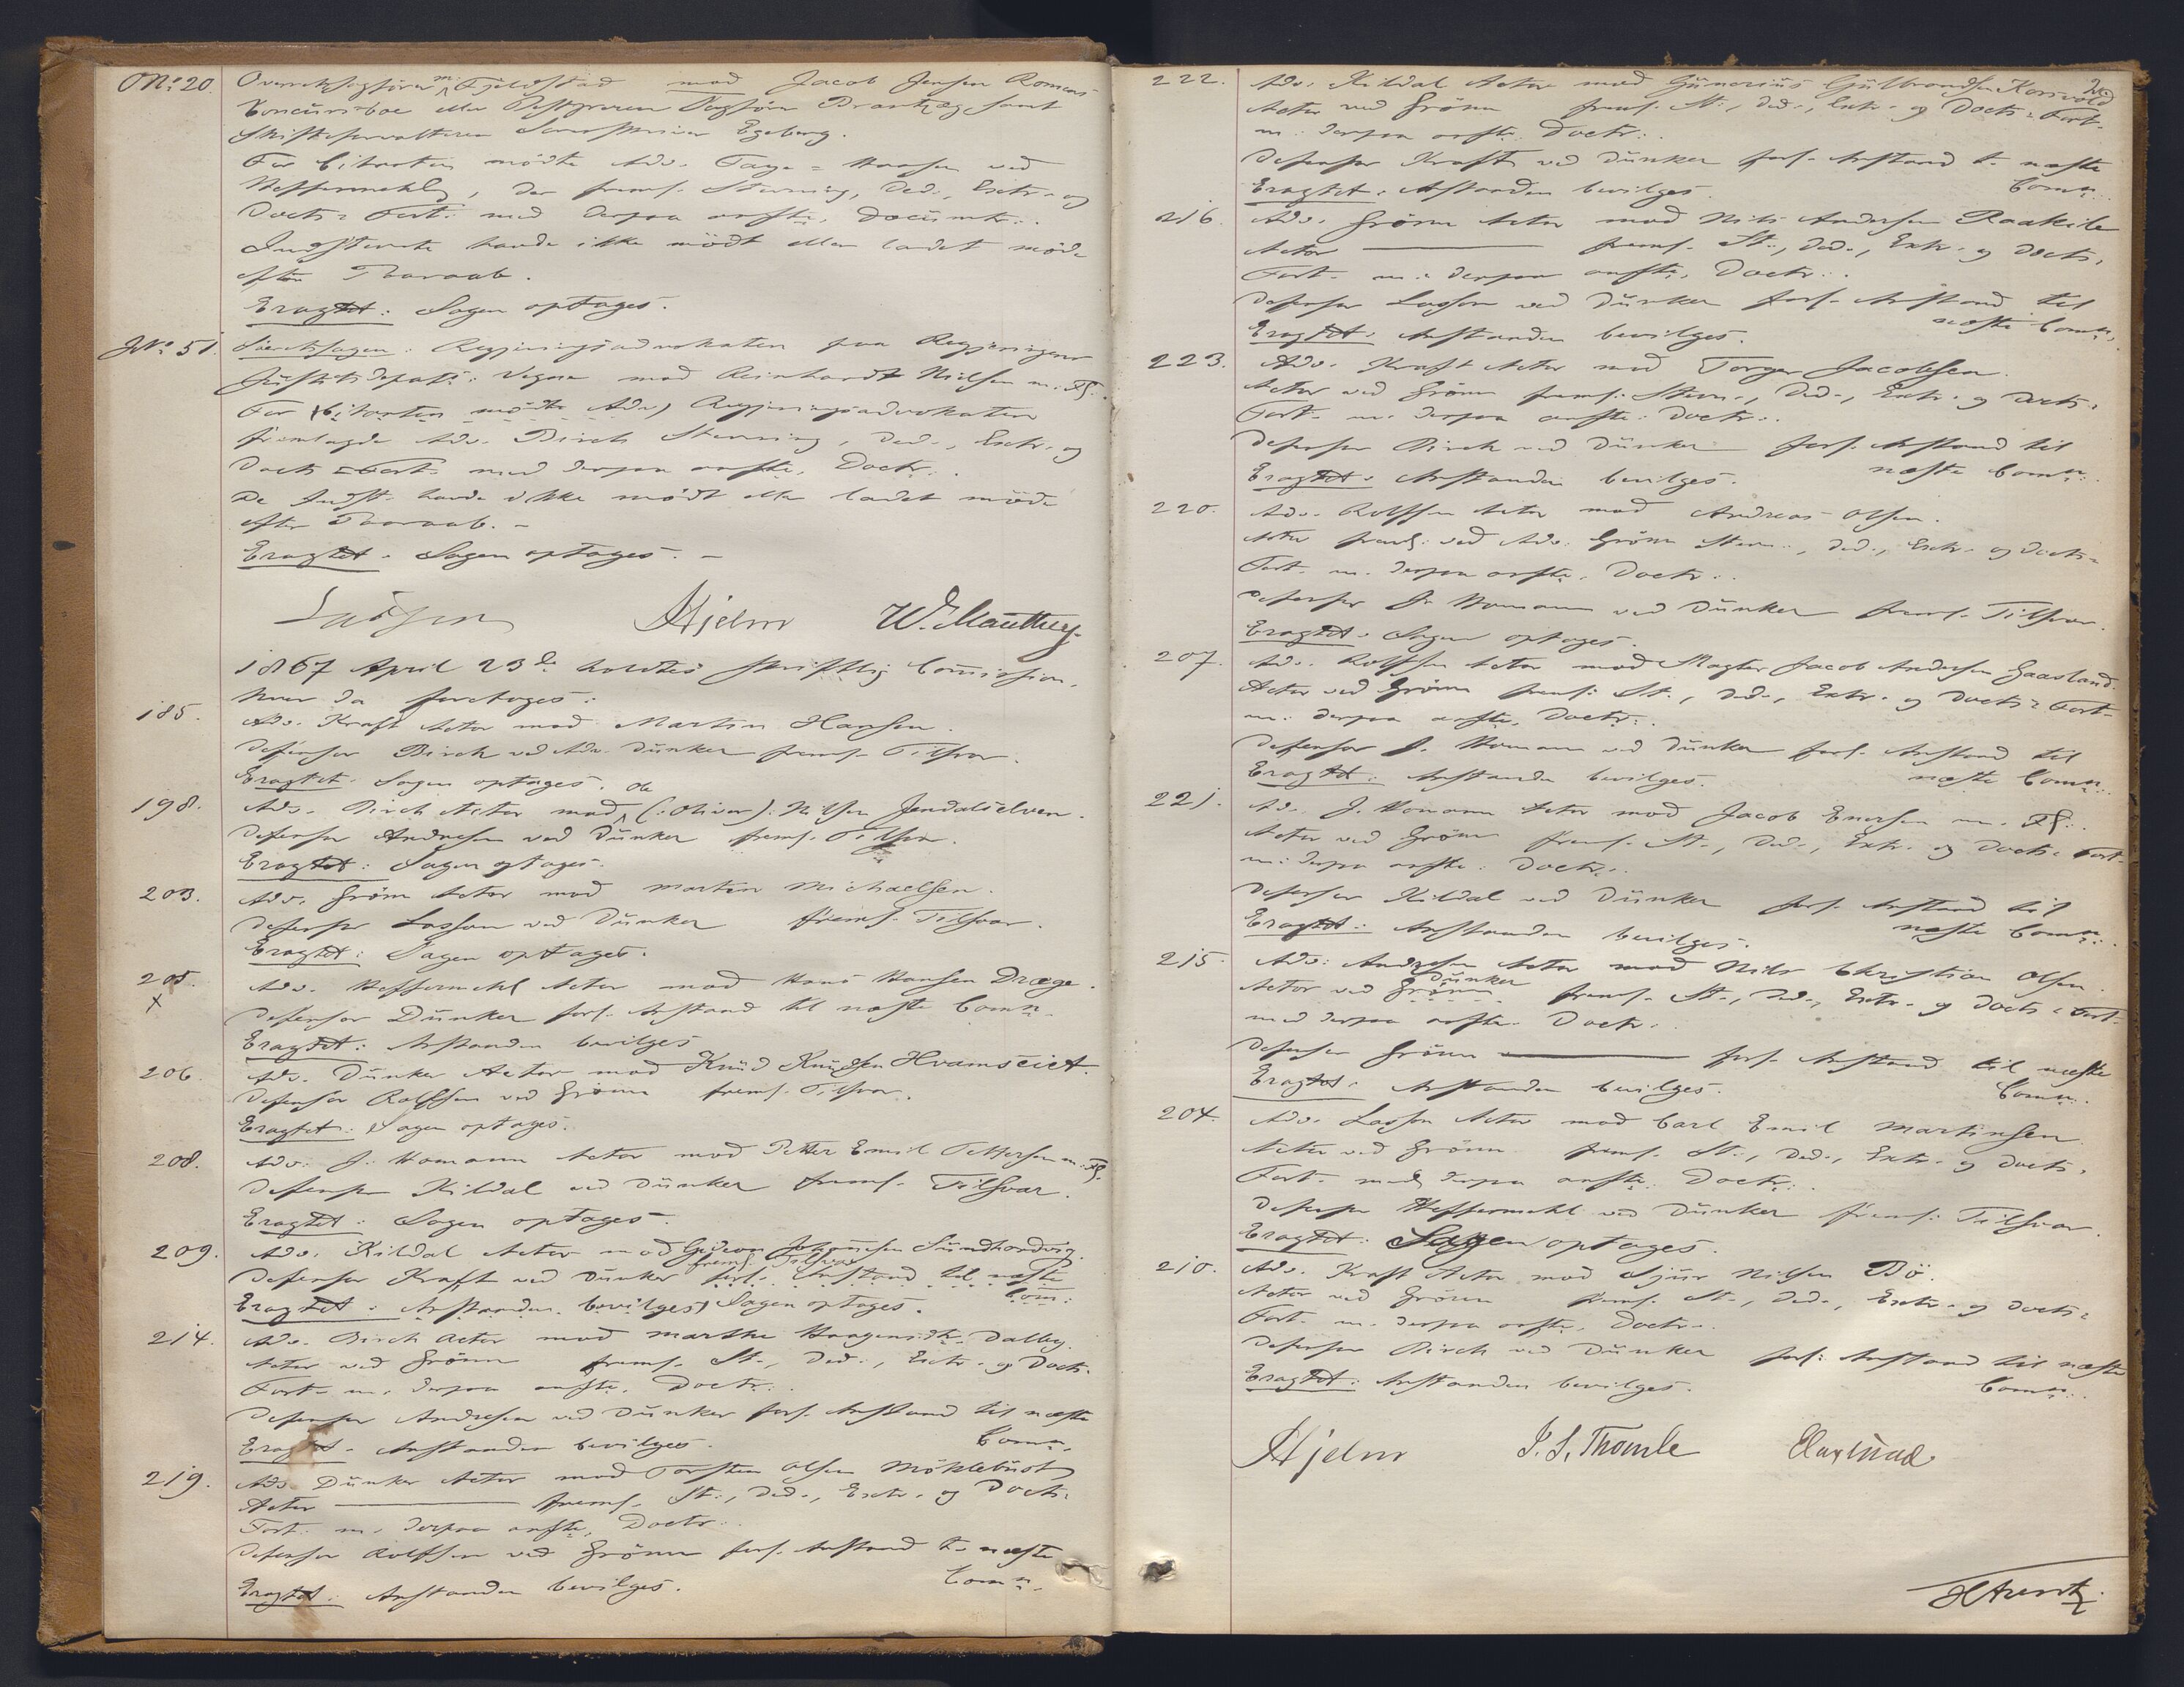 O No 20. Overretssagfører m. Fjeldstad mod Jacob Jensen Romcas
Concursboe eller Sagfører Brantzeg samt
Skifteforvalteren Sorenskriver Egeberg.
For Citanten mødte Adv. Faye-Hansen ved
Heffermehl, der frems. Stevning, Ded., Extr. og
Docts-Fort. med derpaa anførte Documtr.
Indstevnte havde ikke mødt eller ladet møde
efter Paaraab.
Eragtet: Sagen optages.
J No 51. Søeretssagen: Regjeringsadvokaten paa Regjeringens
Justitsdepts: Vegne mod Reinhardt Nielsen m. Fl:
For (Citanten mødte Adv.) Regjeringsadvokaten
fremlagde Adv. Birch Stevning, Ded., Extr. og
Docts-Fort. med derpaa anførte Doctr.
De Indst. havde ikke mødt eller ladet møde
efter Paaraab. -
Eragtet: Sagen optages. -
Hjelm W. Manthey
1867 April 23de holdtes skriftlig Commission,
hvor da foretoges:
185. Adv. Kraft Actor mod Martin Hansen.
Defensor Birch ved Adv. Dunker frems. Tilsvar.
Eragtet: Sagen optages.
198. Adv. Birch Actor mod Ole (: Oliver :) Nilsen Jendalselven.
Defensor Andresen ved Dunker frems. Tilsvar.
Eragtet: Sagen optages.
203. Adv. Grönn Actor mod Martin Michaelsen.
Defensor Lasson ved Dunker frems. Tilsvar.
Eragtet: Sagen optages.
205. Adv. Heffermehl Actor mod Hans Hansen Dræge.
x Defensor Dunker forl. Anstand til næste Commn.
Eragtet: Anstanden bevilges
206. Adv. Dunker Actor mod Knud Knudsen Hvamseiet.
Defensor Rolfsen ved Grönn frems. Tilsvar.
Eragtet: Sagen optages.
208. Adv. J. Homann Actor mod Petter Emil Pettersen m. Fl.
Defensor Kildal ved Dunker frems. Tilsvar.
Eragtet: Sagen optages.
209. Adv. Kildal Actor mod Gideon Johannesen Sundhordvig.
frems. Tilsvar
Defensor Kraft ved Dunker forl. Anstand til næste
Com:
Eragtet: Anstanden bevilges) Sagen optages.
214. Adv. Birch Actor mod Marthe Haagensdtr. Dalby.
Actor ved Grönn frems. St., Ded., Extr. og Docts-
Fort. m. derpaa anførte Doctr.
Defensor Andresen ved Dunker forl. Anstand til næste
Eragtet: Anstanden bevilges. Commn.
219. Adv. Dunker Actor mod Torsten Olsen Möklebust
Actor ——— frems. St., Ded., Extr. og Docts-
Fort. m. derpaa anførte Doctr.
Defensor Rolfsen ved Grönn forl. Anstand t. næste
Eragtet: Anstanden bevilges. Commn.
222. Adv. Kildal Actor mod Gunerius Gulbrandsen Korsvold
Actor ved Grönn frems. St., Ded., Extr. og Docts-Fort.
m. derpaa anførte Doctr.
Defensor Kraft ved Dunker forl. Anstand t. næste
Eragtet: Anstanden bevilges. Commn.
216. Adv. Grönn Actor mod Nils Andersen Raakile
Actor ——— frems. St., Ded., Extr. og Docts-
Fort. m. derpaa anførte Doctr.
Defensor Lasson ved Dunker forl. Anstand til
næste Commn.
Eragtet: Anstanden bevilges.
223. Adv. Kraft Actor mod Torger Jacobsen.
Actor ved Grönn frems. Stevn., Ded., Extr. og Docts-
Fort. m. derpaa anførte Doctr.
Defensor Birch ved Dunker forl. Anstand til
næste Commn.
Eragtet: Anstanden bevilges.
220. Adv. Rolfsen Actor mod Andreas Olsen.
Actor freml. ved Adv. Grönn Stevn., Ded., Extr. og Docts-
Fort. m. derpaa anførte Doctr.
Defensor J. Homann ved Dunker frems. Tilsvar.
Eragtet: Sagen optages.
207. Adv. Rolfsen Actor mod Magter Jacob Andersen Gaasland.
Actor ved Grönn frems. St., Ded., Extr. og Docts-Fort-
m. derpaa anførte Doctr.
Defensor J. Homann ved Dunker forl. Anstand til
næste Commn.
Eragtet: Anstanden bevilges.
221. Ad. J. Homann Actor mod Jacob Enersen m. Fl.
Actor ved Grönn frems. St., Ded., Extr. og Docts-Fort-
m. derpaa anførte Doctr.
Defensor Kildal ved Dunker forl. Anstand til
næste Commn.
Eragtet: Anstanden bevilges.
215. Adv. Andresen Actor mod Nils Christian Olsen.
Dunker
Actor ved Grönn frems. St., Ded., Extr. og Docts-Fort-
med derpaa anførte Doctr.
Defensor Grönn ——— forl. Anstand til næste
Eragtet: Anstanden bevilges. Commn.
204. Adv. Lasson Actor mod Carl Emil Martinsen
Actor ved Grönn frems. St., Ded., Extr. og Docts-
Fort. med derpaa anførte Doctr.
Defensor Heffermehl ved Dunker frems. Tilsvar.
Eragtet: Sagen optages.
210. Adv. Kraft Actor mod Sjur Nilsen Bö.
Actor ved Grönn frems. St., Ded., Extr. og Docts-
Fort. m. derpaa anførte Doctr.
Defensor Birch ved Dunker forl. Anstand til næste
Eragtet: Anstanden bevilges. Commn.
Hjelm J. S. Thomle